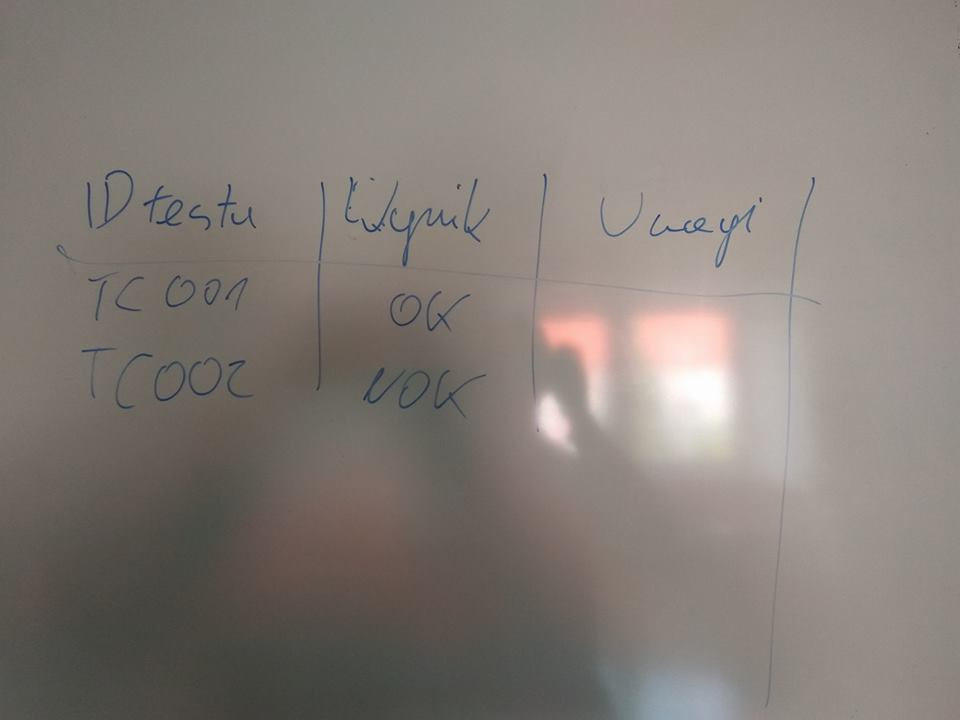 ID testu Wynik Uwagi
TC001 OK
TC002 NOK